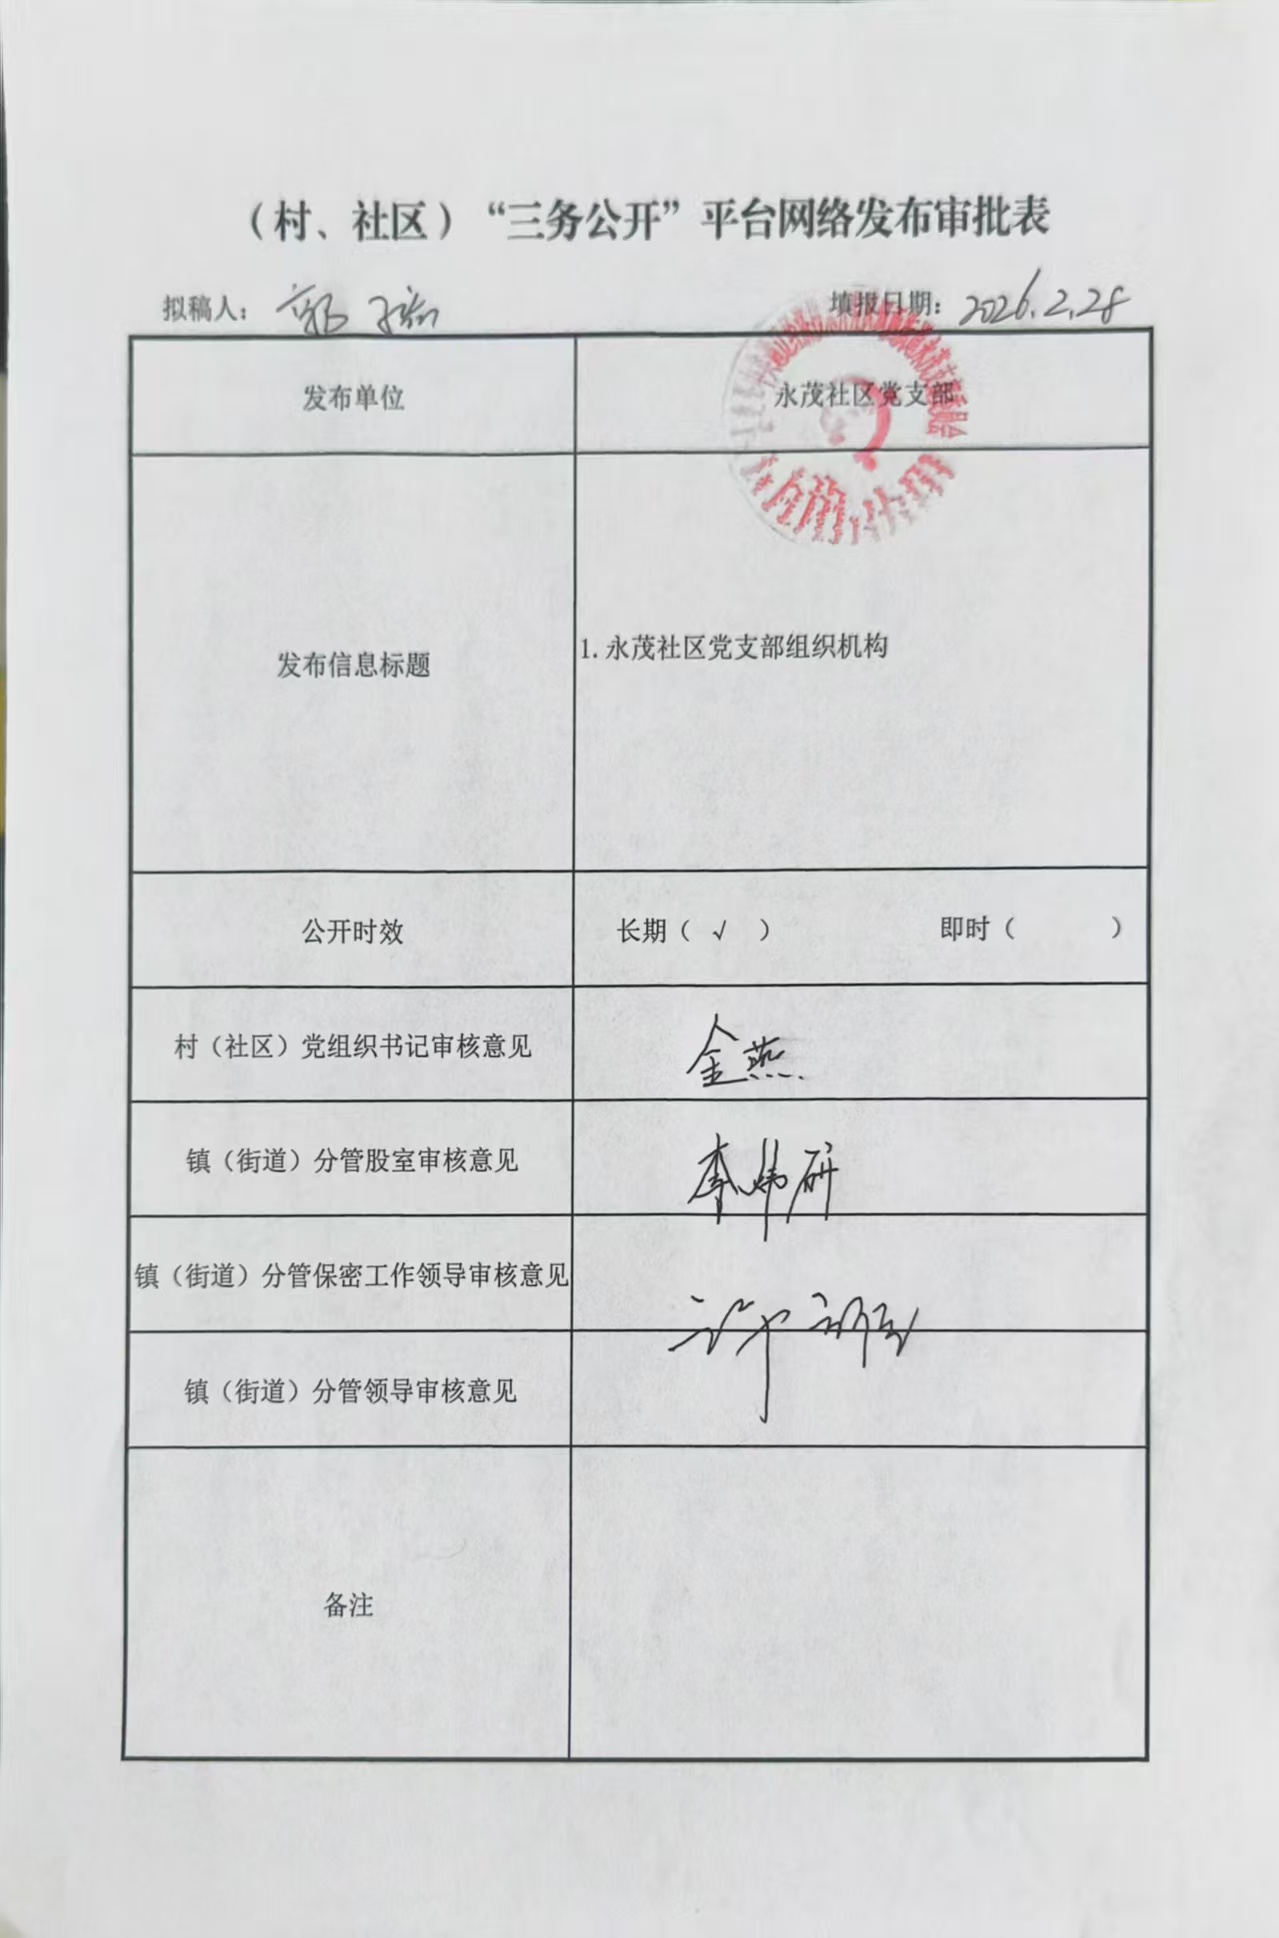 （村、社区）“三务公开”平台网络发布审批表
拟稿人： 填报日期：2026.2.28
发布单位 永茂社区党支部
发布信息标题 1.永茂社区党支部组织机构
公开时效 长期（ √ ） 即时（ ）
村（社区）党组织书记审核意见 金燕
镇（街道）分管股室审核意见 李炜研
镇（街道）分管保密工作领导审核意见
镇（街道）分管领导审核意见
备注